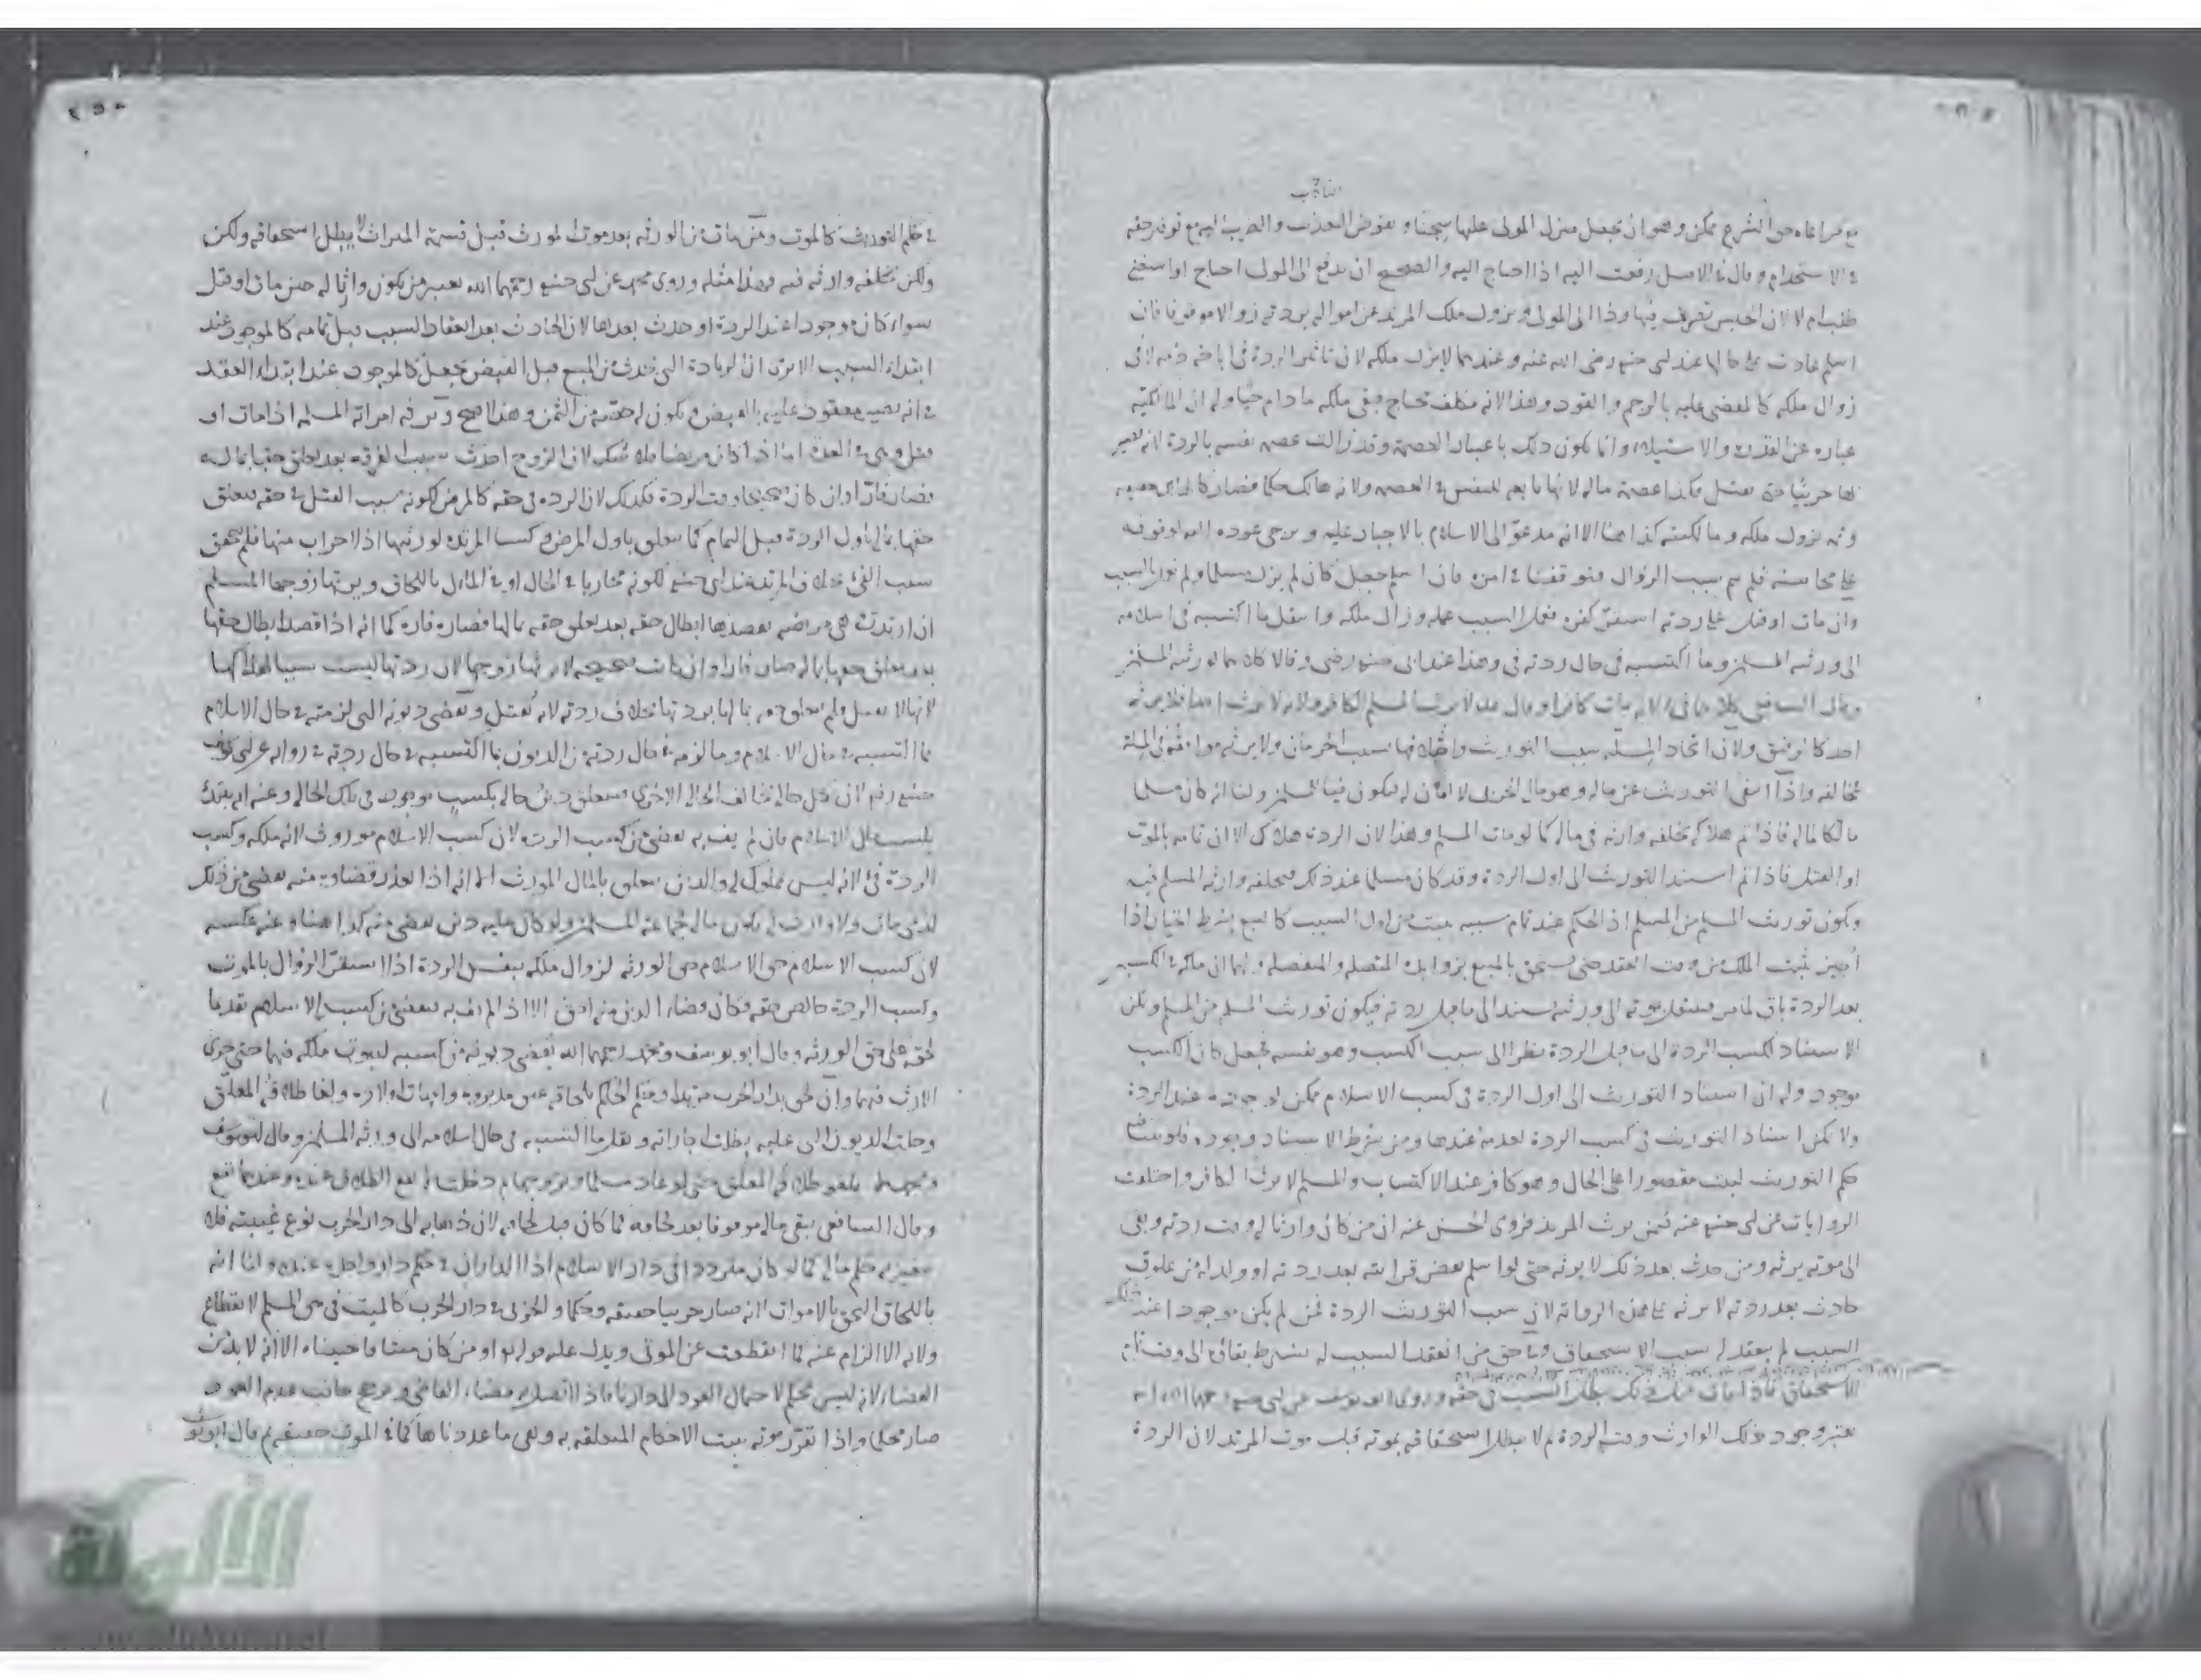 التأديب
مع مراعاة حق الشرع ممكن وهو ان يجعل منزل المولى عليها سجنا ويفوض التعذيب والتأديب اليه مع توفر حقه
في الاستخدام وقال في الاصل دفعت اليه اذا احتاج اليه والصحيح ان تدفع الى المولى احتاج او استغنى
طلب ام لا لان الحبس تصرف فيها وذا الى المولى ويزول ملك المرتد عن امواله بردته زوالا موقوفا فان
اسلم عادت على حالها عند ابي حنيفة رضي الله عنه وعندهما لا يزول ملكه لان تاثير الردة في اباحة دمه لا في
زوال ملكه كالمقضي عليه بالرجم والقود وهذا لانه مكلف محتاج فبقي ملكه ما دام حيا وله ان المالكية
عبارة عن القدرة والاستيلاء وانما يكون ذلك باعتبار العصمة وقد زالت عصمة نفسه بالردة لانه يصير
بها حربيا حتى يقتل فكذا عصمة ماله لانها تابعة للنفس في العصمة ولانه هالك حكما فصار كالهالك حقيقة
وبه يزول ملكه ومالكيته كذا هنا الا انه مدعو الى الاسلام بالاجبار عليه ويرجى عوده اليه لوقوفه
على محاسنه فلم يتم سبب الزوال فتوقفنا في امره فان اسلم جعل كان لم يزل مسلما ولم السبب
وان مات او قتل على ردته استقر كفره فعمل السبب عمله وزال ملكه وانتقل ما اكتسبه في اسلامه
الى ورثته المسلمين وما اكتسبه في حال ردته فيء وهذا عند ابي حنيفة رضي وقالا كلاهما لورثته المسلمين
وقال الشافعي كلاهما فيء لانه مات كافرا وقال لا يرث المسلم الكافر ولانه لا يرث احدا فلا يرثه
احد كالرقيق ولان اتحاد الملة سبب التوريث واختلافها سبب الحرمان ولا يرثه موافقوه في الملة
مخالفه واذا انتفى التوريث عن ماله وهو مال الحربي لا امان له فيكون فيئا للمسلمين ولنا انه كان مسلما
مالكا لماله فاذا تم هلاكه يخلفه وارثه في ماله كما لو مات المسلم وهذا لان الردة هلاك الا ان تمامه بالموت
او القتل فاذا تم استند التوريث الى اول الردة وقد كان مسلما عند ذلك فيخلفه وارثه المسلم فيه
ويكون توريث المسلم من المسلم اذ الحكم عند تمام سببه يثبت من اول السبب كالبيع بشرط الخيار اذا
اجيز يثبت الملك من وقت العقد حتى يستحق بالمبيع بزوايده المتصلة والمنفصلة ولهما ان ملكه في الكسب
بعد الردة باق لما مر فينتقل بموته الى ورثته مستندا الى ما قبل ردته فيكون توريث المسلم من المسلم ويكن
الاستناد لكسب الردة الى ما قبل الردة نظرا الى سبب الكسب وهو نفسه فجعل كان الكسب
موجود وله ان استناد التوريث الى اول الردة في كسب الاسلام ممكن لوجوده عند الردة
ولا يمكن استناد التوريث في كسب الردة لعدمه عندها ومن شرط الاستناد وجوده فلو ثبت
حكم التوريث لثبت مقصورا على الحال وهو كافر عند الاكتساب والمسلم لا يرث الكافر واختلفت
الروايات عن ابي حنيفة عنه فيمن يرث المرتد فروى الحسن عنه ان من كان وارثا له وقت ردته وبقي
الى موته يرثه ومن حدث بعد ذلك لا يرثه حتى لو اسلم بعض قرابته بعد ردته او ولد له من علوق
حادث بعد ردته لا يرثه على هذه الرواية لان سبب التوريث الردة فمن لم يكن موجودا عند ذلك
السبب لم ينعقد له سبب الاستحقاق وفي حق من انعقد السبب له يشترط بقاؤه الى وقت تمام
الاستحقاق فاذا مات قبل ذلك يبطل السبب في حقه وروى ابو يوسف عن ابي حنيفة رحمهما الله انه
يعتبر وجود ذلك الوارث وقت الردة ثم لا يبطل استحقاقه بموته قبل موت المرتد لان الردة
في حكم التوريث كالموت ومن مات من الورثة بعد موت المورث قبل قسمة الميراث لا يبطل استحقاقه ولكن
ولكن يخلفه وارثه فيه فهذا مثله وروى محمد عن ابي حنيفة رحمهما الله يعتبر من يكون وارثا له حين مات او قتل
سواء كان موجودا عند الردة او حدث بعدها لان الحادث بعد انعقاد السبب قبل تمامه كالموجود عند
ابتداء السبب الا ترى ان الزيادة التي تحدث من المبيع قبل القبض تجعل كالموجود عند ابتداء العقد
في انه يصير معقودا عليه بالقبض ويكون له حصة من الثمن وهذا اصح وترثه امراته المسلمة اذا مات او
قتل وهي في العدة اما اذا كان مريضا فلا يشكل لان الزوج احدث سبب الفرقة بعد تعلق حقها بماله
فصار فارا وان كان صحيحا وقت الردة فكذلك لان الردة في حقه كالمرض لكونه سبب القتل في حقه فيتعلق
حقها بماله باول الردة قبل التمام كما يتعلق باول المرض وكسب المرتدة لورثتها اذ لا حراب منها فلم يتحقق
سبب الفيء بخلاف المرتد عند ابي حنيفة لكونه محاربا في الحال او في المآل باللحاق ويرثها زوجها المسلم
ان ارتدت هي مريضة لقصدها ابطال حقه بعد تعلق حقه بمالها فصارت فارة كما انه اذا قصد ابطال حقها
بعد تعلق حقها بماله صار فارا وان كانت صحيحة لا يرثها زوجها لان ردتها ليست سببا لهلاكها
لانها لا تقتل ولم يتعلق حقه بمالها بردتها بخلاف ردته لانه يقتل وتقضى ديونه التي لزمته في حال الاسلام
مما اكتسبه في حال الاسلام وما لزمه في حال ردته من الديون مما اكتسبه في حال ردته في رواية عن ابي
حنيفة رضه لان كل حالة تخالف الحالة الاخرى فيتعلق دين حالة بكسب موجود في تلك الحالة وعنه انه يبدا
بكسب الاسلام فان لم يف به يقضى من كسب الردة لان كسب الاسلام موروث لانه ملكه وكسب
الردة فيء لانه ليس بمملوك له والدين يتعلق بالمال الموروث الا انه اذا تعذر قضاؤه منه يقضى من ذلك
كذمي مات ولا وارث له يكون ماله لجماعة المسلمين ولو كان عليه دين يقضى منه كذا هنا وعنه عكسه
لان كسب الاسلام حق الورثة لزوال ملكه بنفس الردة اذا استقر الزوال بالموت
وكسب الردة خالص حقه فكان قضاء الدين منه احق الا اذا لم يف به فيقضى من كسب الاسلام تقديما
لحقه على حق الورثة وقال ابو يوسف ومحمد رحمهما الله يقضى ديونه من كسبيه لثبوت ملكه فيهما حتى جرى
الارث فيهما وان لحق بدار الحرب مرتدا وحكم الحاكم بلحاقه عتق مدبروه وامهات اولاده ولغا طلاقه المعلق
وحلت الديون التي عليه بطلت اجاراته ونقل ما اكتسبه في حال اسلامه الى ورثته المسلمين وقال ابو يوسف
ومحمد لا يلغو طلاقه المعلق حتى لو عاد مسلما وتزوجها ثم دخلت لم يقع الطلاق عنده وعندهما يقع
وقال الشافعي يبقى ماله موقوفا بعد لحاقه كما كان قبل لحاقه لان ذهابه الى دار الحرب نوع غيبة فلا
يتغير به حكم ماله كما لو كان مترددا في دار الاسلام اذ الداران في حكم دار واحدة عنده ولنا انه
باللحاق التحق بالاموات لانه صار حربيا حقيقة وحكما والحربي في دار الحرب كالميت في حق المسلم لانقطاع
ولاية الالزام عنه كما انقطعت عن الموتى ويدل عليه قوله او من كان ميتا فاحييناه الا انه لا بد من
القضاء لانه ليس محكم لاحتمال العود الى دارنا فاذا اتصل به قضاء القاضي وترجح جانب عدم العود
صار محكما واذا تقرر موته يثبت الاحكام المتعلقة به وهي ما عددناها كما في الموت حقيقة ثم قال ابو يوسف
الألوكة